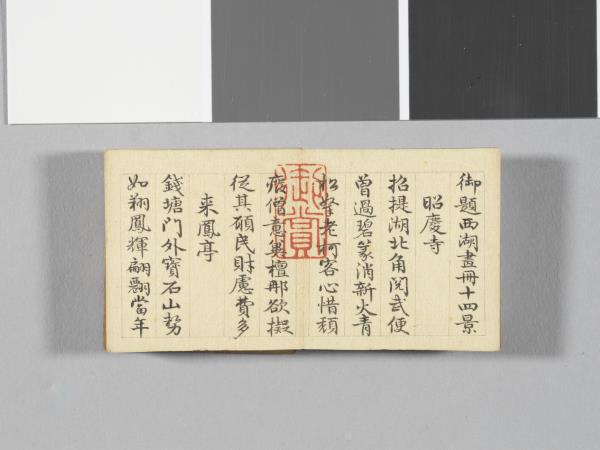 御題西湖畫冊十四景
昭慶寺
招提湖北角閱武便
曾過碧篆消新火青
松擎老柯客心惜頹
廢僧意異檀那欲擬
從其願民財慮費多
来鳳亭
錢塘門外寶石山勢
如翔鳳輝翩翾當年
御賞